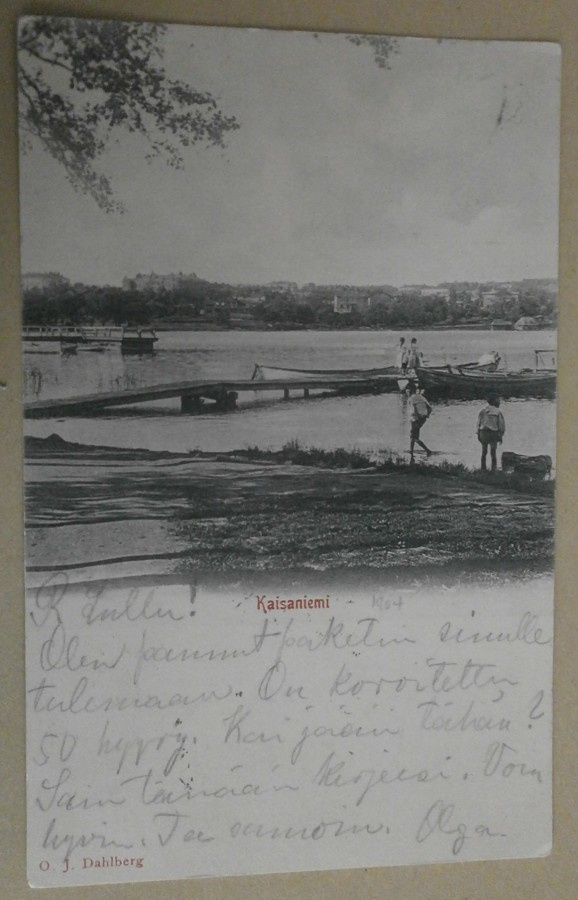 Kaisaniemi 1904
R Lullu!
Olen pannut paketin sinulle
tulemaan. On
50 Kai jääin tähän?
Sain tänään kirjeesi. Voin
hyvin. Te samoin. Olga.
O. J. Dahlberg